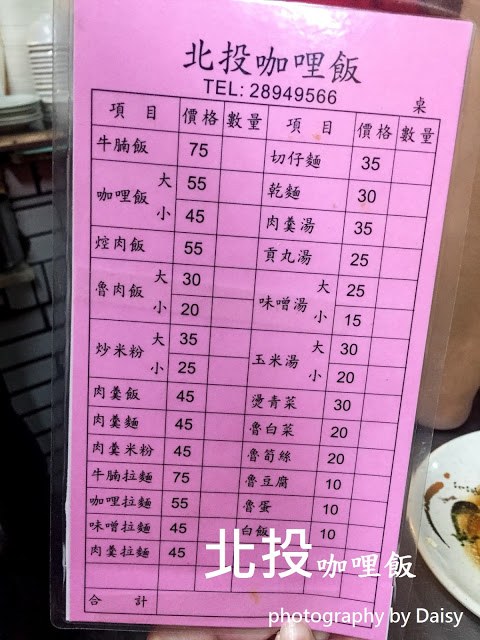 北投咖哩飯
TEL: 28949566
桌
項目 價格 數量 項目 價格 數量
牛腩飯 75
咖哩飯 大 55
小 45
焢肉飯 55
魯肉飯 大 30
小 20
炒米粉 大 35
小 25
肉羹飯 45
肉羹麵 45
肉羹米粉 45
牛腩拉麵 75
咖哩拉麵 55
味噌拉麵 45
肉羹拉麵 45
合計
切仔麵 35
乾麵 30
肉羹湯 35
貢丸湯 25
味噌湯 大 25
小 15
玉米湯 大 30
小 20
燙青菜 30
魯白菜 20
魯筍絲 20
魯豆腐 10
魯蛋 10
白飯 10
北投咖哩飯
photography by Daisy